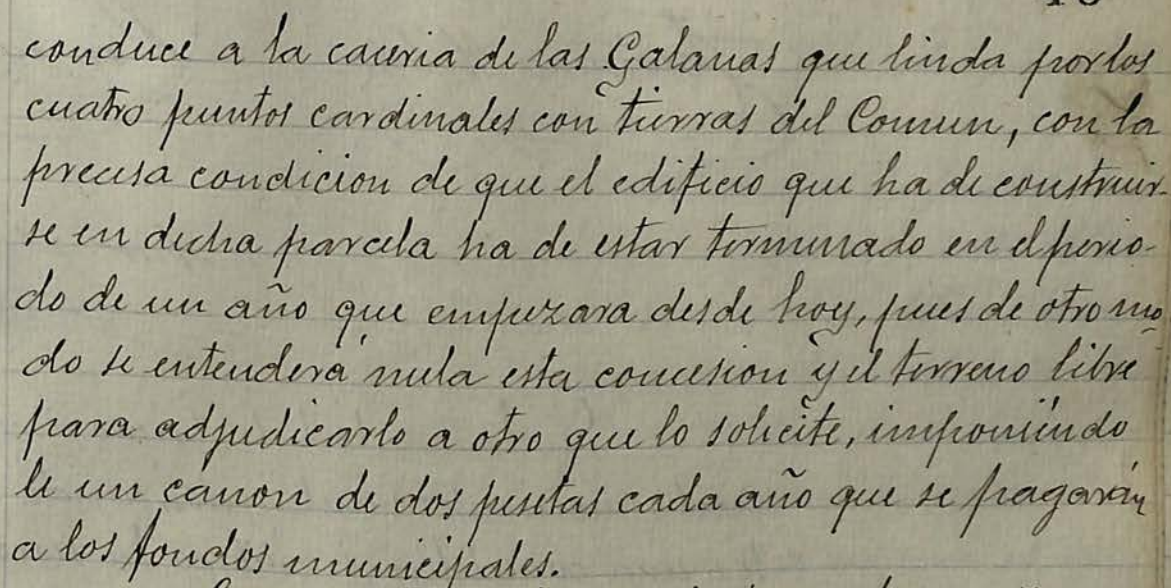 conduce a la caceria de las Galanas que linda por los
cuatro puntos cardinales con tierras del Comun, con la
precisa condicion de que el edificio que ha de construir-
se en dicha parcela ha de estar terminado en el perio-
do de un año que empezara desde hoy, pues de otro mo-
do se entenderá nula esta concesion y el terreno libre
para adjudicarlo a otro que lo solicite, imponiendo
le un canon de dos pesetas cada año que se pagarán
a los fondos municipales.